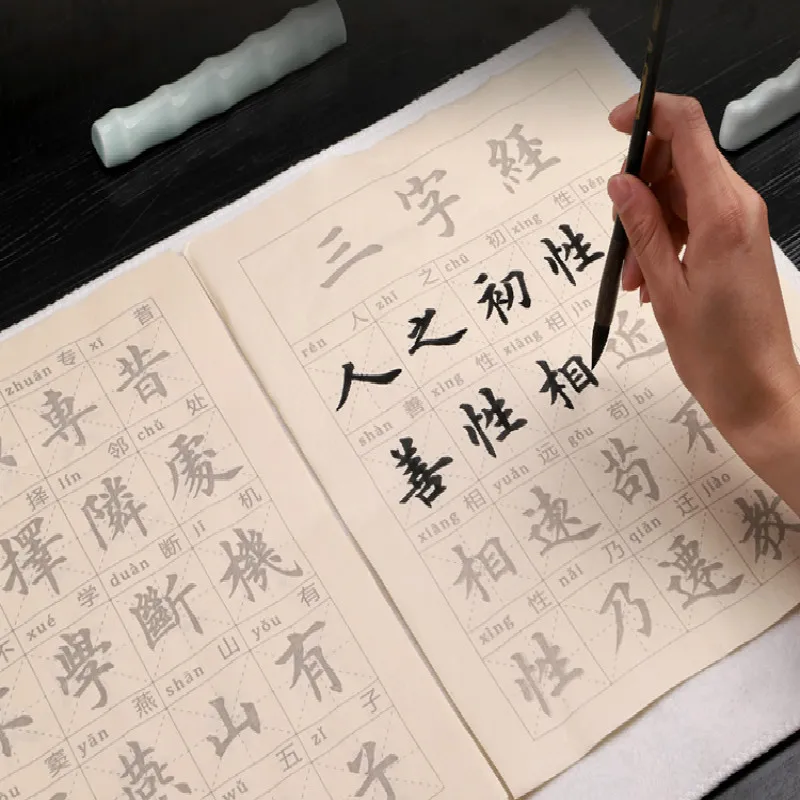 三字經
rén 人 zhī 之 chū 初 xìng 性 běn
人之初性
shàn 善 xìng 性 xiāng 相 jìn
善性相近
xiāng 相 yuǎn 远 gǒu 苟 bú
相遠苟不
xìng 性 nǎi 乃 qiān 迁 jiào
性乃遷教
zhuān 专 xī 昔
專昔
择 lín 邻 chǔ 处
擇隣處
不 xué 学 duàn 断 jī 机
不學斷機
窦 yān 燕 shān 山 yǒu 有
燕山有
wǔ 五 zǐ 子
子